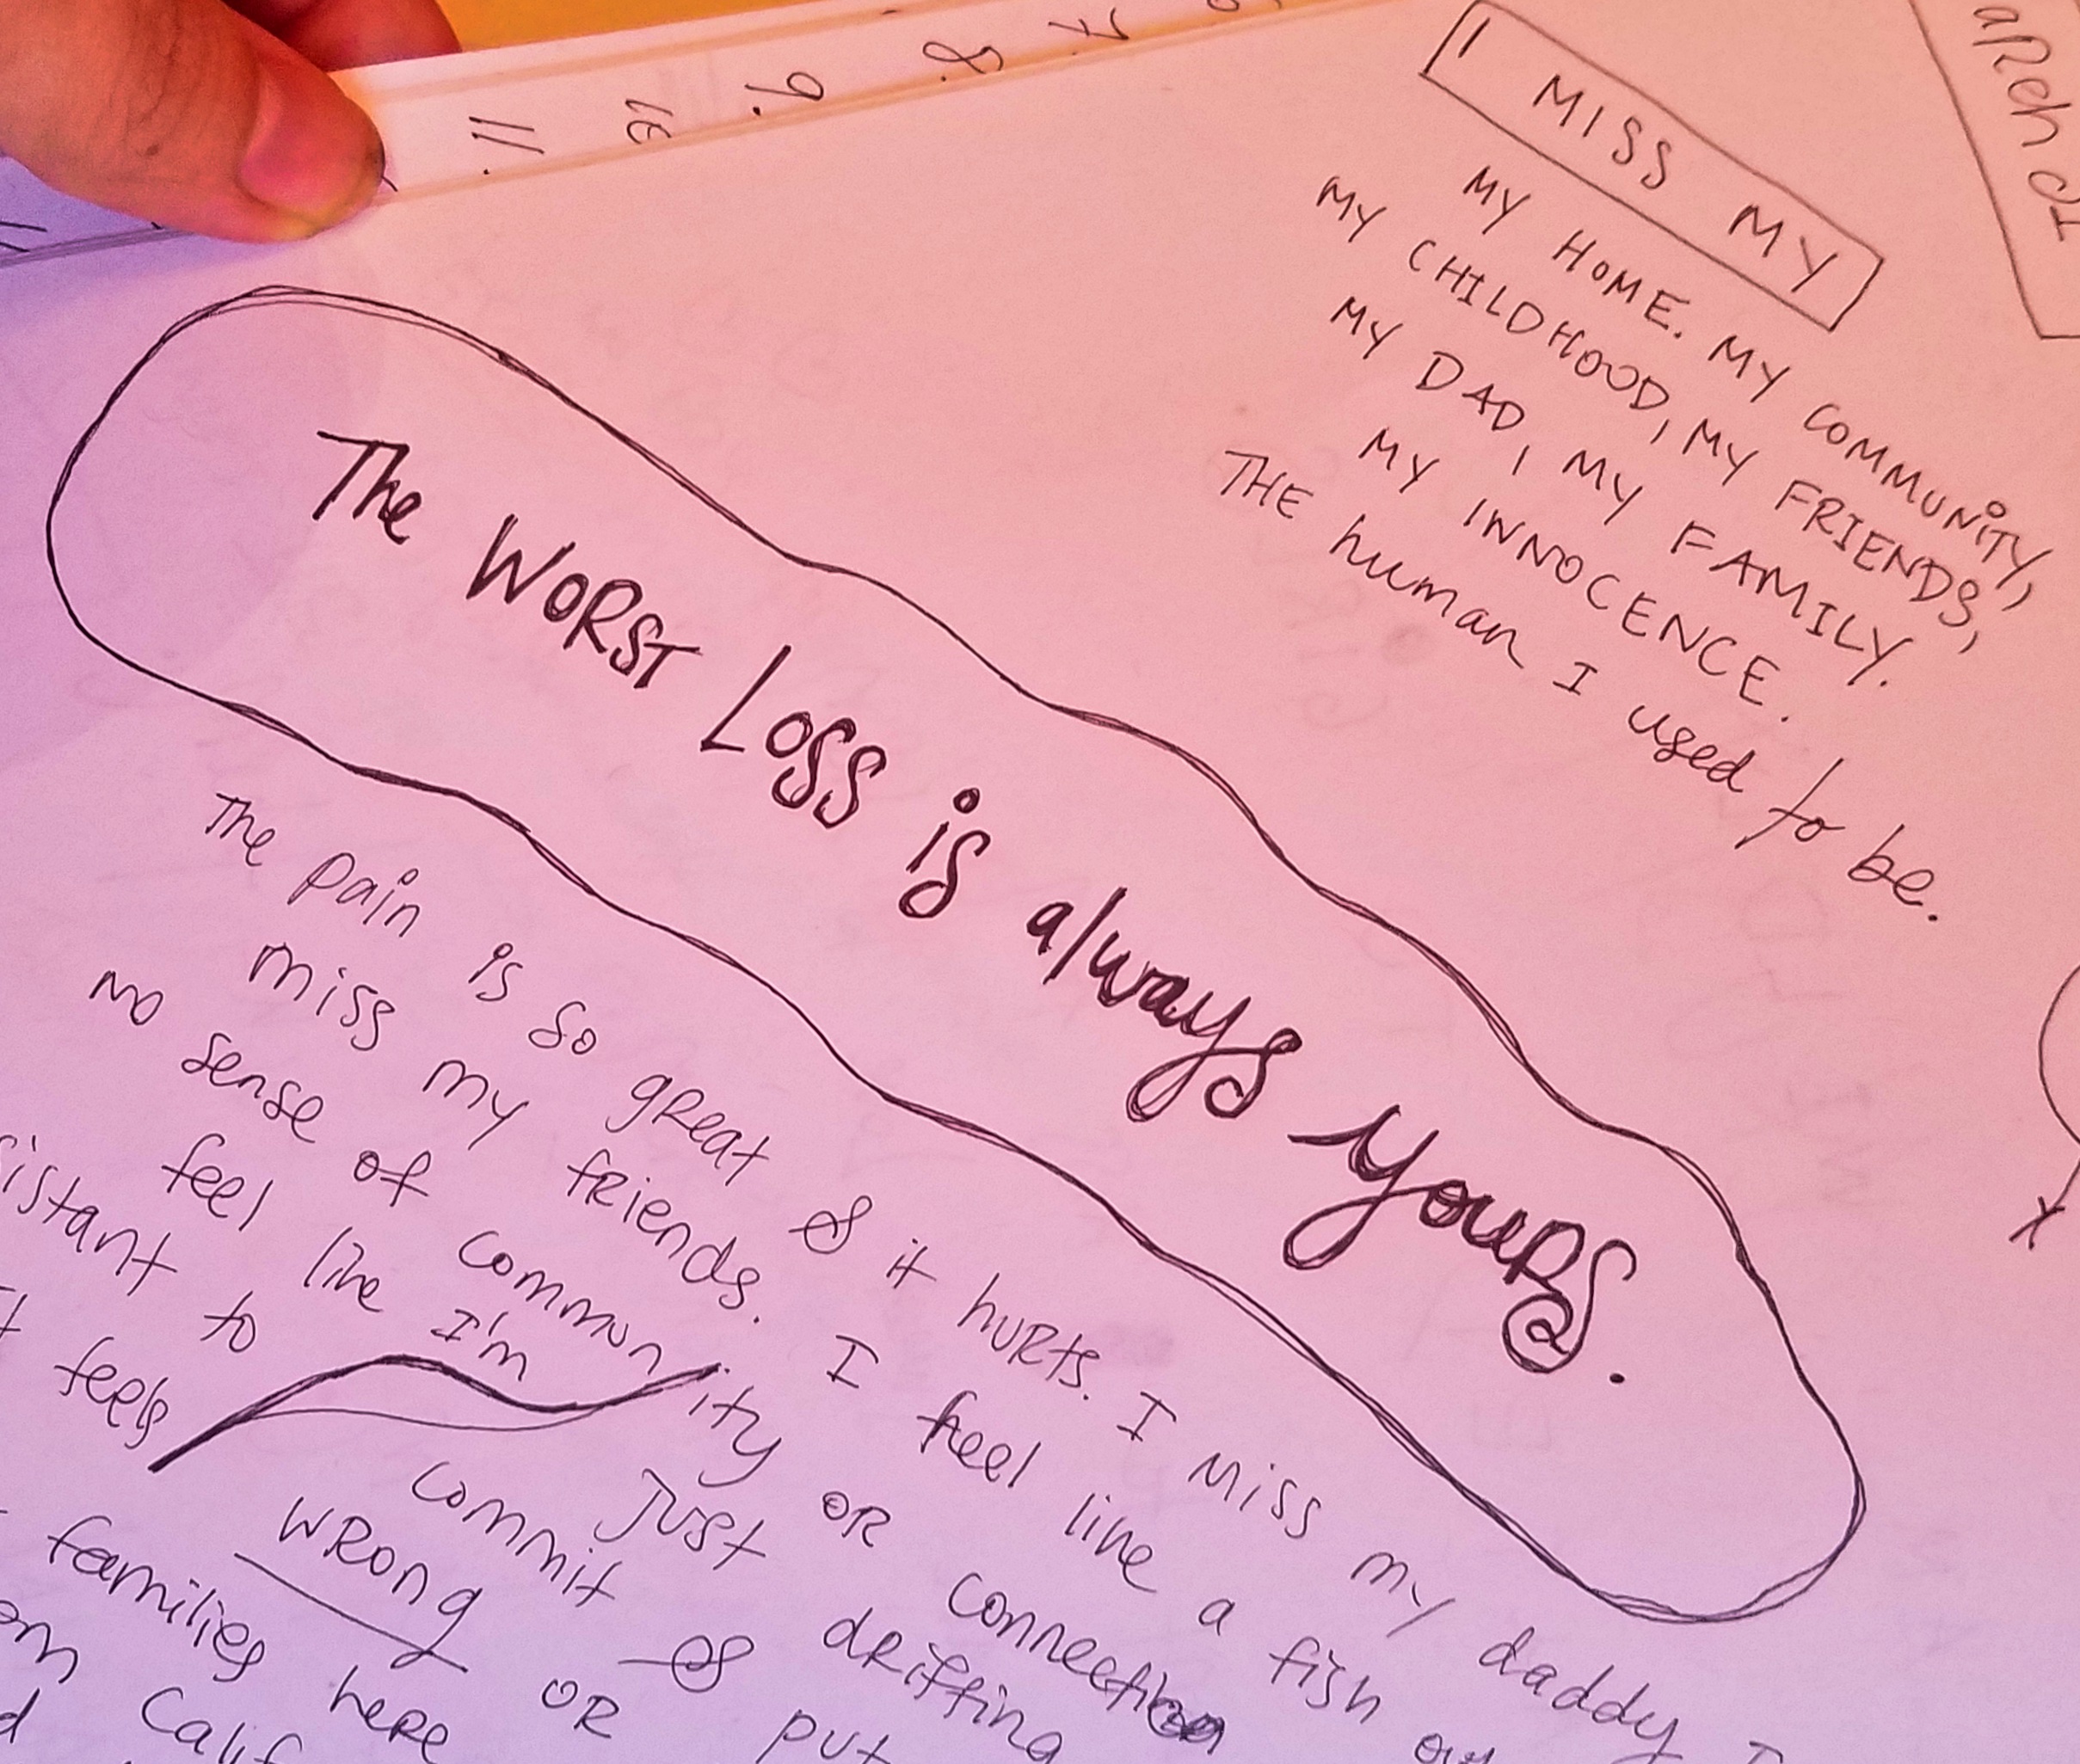 7.
8.
9.
10
11.
I MISS MY
MY HOME. MY COMMUNITY,
MY CHILDHOOD, MY FRIENDS,
MY DAD, MY FAMILY.
MY INNOCENCE.
THE human I used to be.
The WORST Loss is always yours.
The pain is so great & it hurts. I miss my daddy I
miss my friends. I feel like a fish out
no sense of community or connection
feel like I'm just drifting
to commit & put
feels wrong or
families here